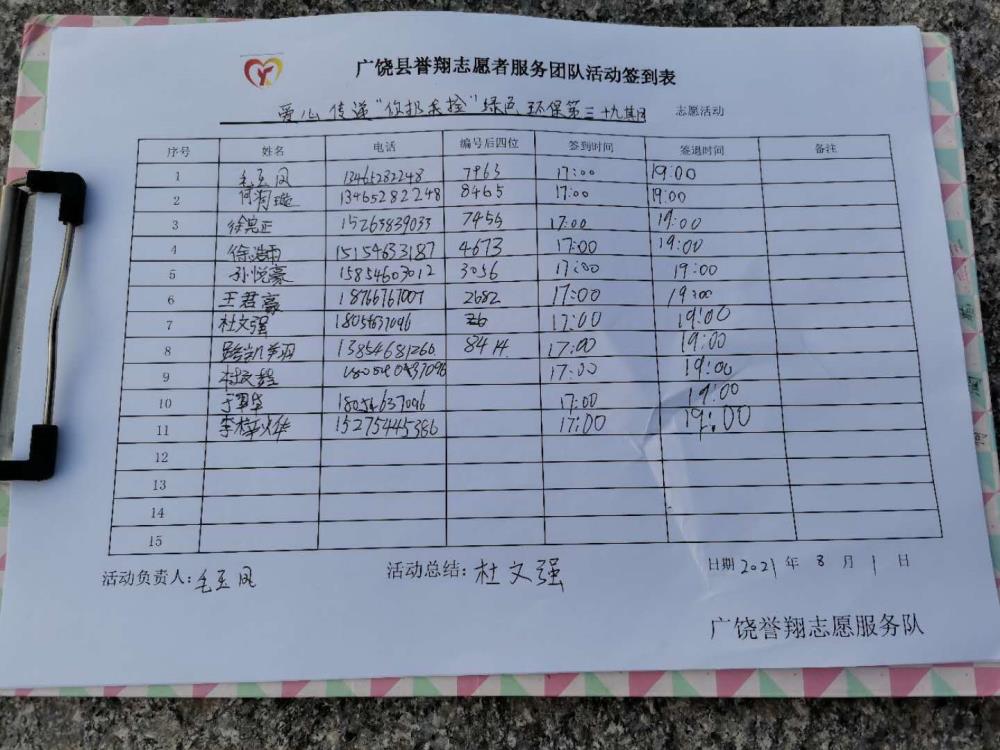 广饶县誉翔志愿者服务团队活动签到表
爱心传递"你扔我捡"绿色环保第三十九期 志愿活动
序号 姓名 电话 编号后四位 签到时间 签退时间 备注
1 毛玉凤 13465282248 7963 17:00 19:00
2 13465282248 8465 17:00 19:00
3 15263839033 7455 17:00 19:00
4 徐浩雨 15154633187 4673 17:00 19:00
5 孙悦豪 15854603012 3056 17:00 19:00
6 王君豪 18766767007 2682 17:00 19:00
7 杜文强 18054637096 17:00 19:00
8 13854681266 8414 17:00 19:00
9 17:00 19:00
10 18054637096 17:00 19:00
11 15275445386 17:00 19:00
12
13
14
15
活动负责人:毛玉凤 活动总结:杜文强 日期2021年8月1日
广饶誉翔志愿服务队